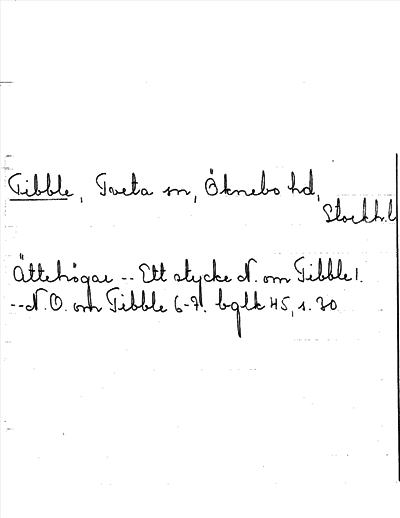 Tibble, Tveta sn, Öknebo hd,
Stockh.l
Ättehögar -- Ett stycke N. om Tibble 1.
--N.O. om Tibble 6-7. bglk 45, s. 30